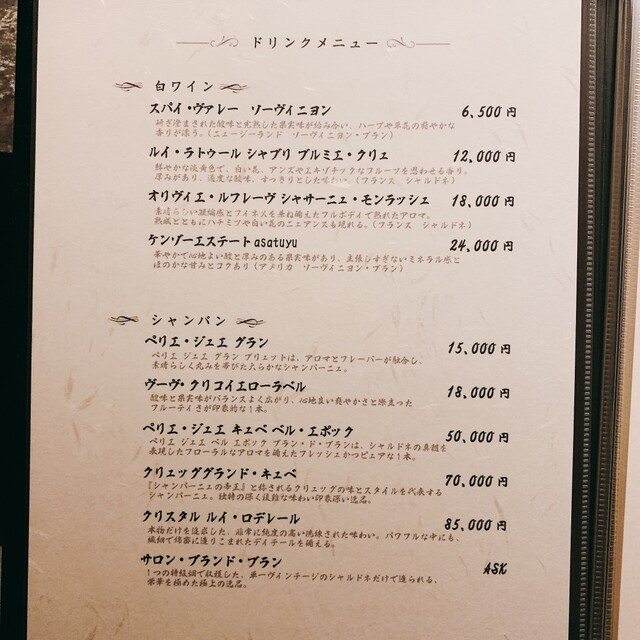 ドリンクメニュー
白ワイン
スパイ・ヴァレー ソーヴィニヨン 6,500円
研ぎ澄まされた酸味と完熟した果実味が絡み合い、ハーブや草花の爽やかな
香りが漂う。(ニュージーランド ソーヴィニヨン・ブラン)
ルイ・ラトゥール シャブリ プルミエ・クリュ 12,000円
鮮やかな淡黄色で、白い花、アンズやエキゾチックなフルーツを思わせる香り。
厚みがあり、適度な酸味、すっきりとした味わい。(フランス シャルドネ)
オリヴィエ・ルフレーヴ シャサーニュ・モンラッシェ 18,000円
素晴らしい凝縮感とフィネスを兼ね備えたフルボディで熟れたアロマ。
熟成とともにハチミツや白い花のニュアンスも現れる。(フランス シャルドネ)
ケンゾーエステート asatuyu 24,000円
華やかで心地よい酸と厚みのある果実味があり、主張しすぎないミネラル感と
ほのかな甘みとコクあり(アメリカ ソーヴィニヨン・ブラン)
シャンパン
ペリエ・ジュエ グラン 15,000円
ペリエ ジュエ グラン ブリュットは、アロマとフレーバーが融合し、
素晴らしく丸みを帯びた大らかなシャンパーニュ。
ヴーヴ・クリコイエローラベル 18,000円
酸味と果実味がバランスよく広がり、心地良い爽やかさと際立った
フルーティさが印象的な1本。
ペリエ・ジュエ キュベ ベル・エポック 50,000円
ペリエ ジュエ ベル エポック ブラン・ド・ブランは、シャルドネの真髄を
表現したフローラルなアロマを備えたフレッシュかつピュアな1本。
クリュッググランド・キュベ 70,000円
『シャンパーニュの帝王』と称されるクリュッグの味とスタイルを代表する
シャンパーニュ。独特の深く複雑な味わい印象深い逸品。
クリスタル ルイ・ロデレール 85,000円
本物だけを追求した、非常に純度の高い洗練された味わい。パワフルな中にも、
繊細で綿密に造りこまれたディテールを備える。
サロン・ブランド・ブラン ASK
1つの特級畑で収穫した、単一ヴィンテージのシャルドネだけで造られる、
栄華を極めた極上の逸品。